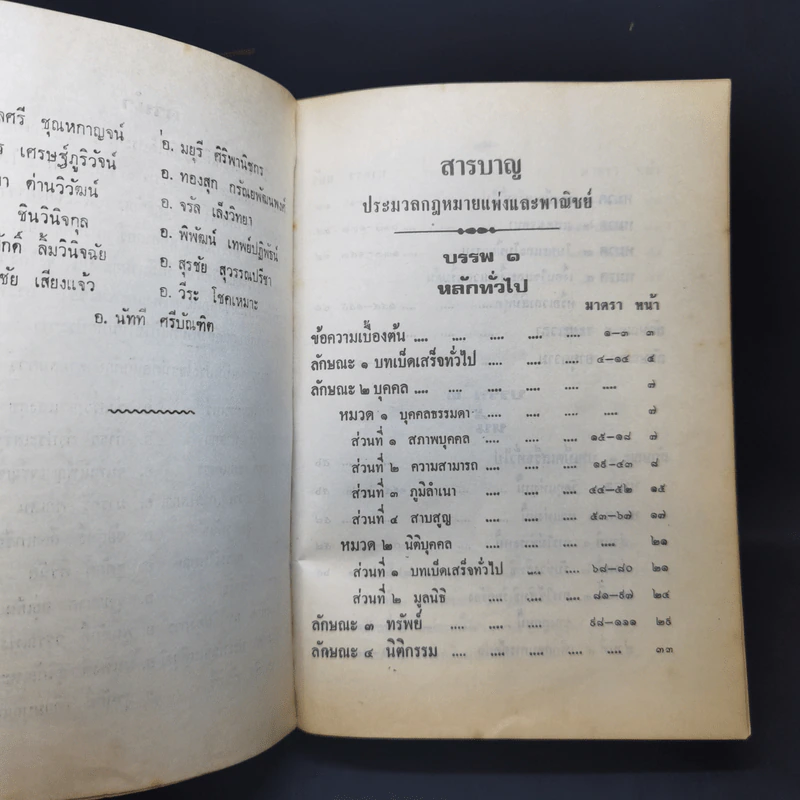 ศรี ชุณหกาญจน์
เศรษฐ์ภูริวัจน์
ด่านวิวัฒน์
ชินวินิจกุล
ลิ้มวินิจฉัย
ชัย เสียงแจ้ว
อ. มยุรี ศิริพานิชกร
อ. ทองสุก กรัณยพัฒนพงศ์
อ. จรัล เล็งวิทยา
อ. พิพัฒน์ เทพย์ปฏิพัธน์
อ. สุรชัย สุวรรณปรีชา
อ. วีระ โชคเหมาะ
อ. นัททิ ศรีบัณฑิต
สารบาญ
ประมวลกฎหมายแพ่งและพาณิชย์
บรรพ ๑
หลักทั่วไป
มาตรา หน้า
ข้อความเบื้องต้น .... .... .... .... .... ๑-๓ ๓
ลักษณะ ๑ บทเบ็ดเสร็จทั่วไป .... .... .... .... ๔-๑๔ ๕
ลักษณะ ๒ บุคคล .... .... .... .... .... ๗
หมวด ๑ บุคคลธรรมดา .... .... .... .... ๗
ส่วนที่ ๑ สภาพบุคคล .... .... .... ๑๕-๑๘ ๗
ส่วนที่ ๒ ความสามารถ .... .... .... ๑๙-๔๓ ๘
ส่วนที่ ๓ ภูมิลำเนา .... .... .... ๔๔-๕๒ ๑๕
ส่วนที่ ๔ สาบสูญ .... .... .... ๕๓-๖๗ ๑๗
หมวด ๒ นิติบุคคล .... .... .... .... ๒๑
ส่วนที่ ๑ บทเบ็ดเสร็จทั่วไป .... .... ๖๘-๘๐ ๒๑
ส่วนที่ ๒ มูลนิธิ .... .... .... ๘๑-๙๗ ๒๔
ลักษณะ ๓ ทรัพย์ .... .... .... .... ๙๘-๑๑๑ ๒๙
ลักษณะ ๔ นิติกรรม .... .... .... .... .... ๓๓